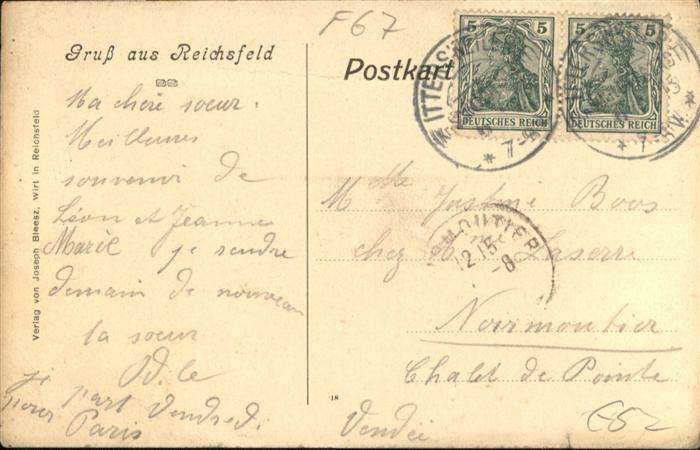 F67
Gruß aus Reichsfeld
Postkart
5 5
5 5
DEUTSCHES REICH
DEUTSCHES REICH
Verlag von Joseph Bleesz, Wirt in Reichsfeld
Ma chère soeur.
Meilleurs
souvenir de
Léon et Jeanne
Marie je
demain de nouveau
ta soeur
Odile
je part Vendredi
pour Paris
Mlle Justine Boos
chez Laserre
MOUTIER
12 15
8
Noirmoutier
Chalet de Pointe
Vendée
18
E52